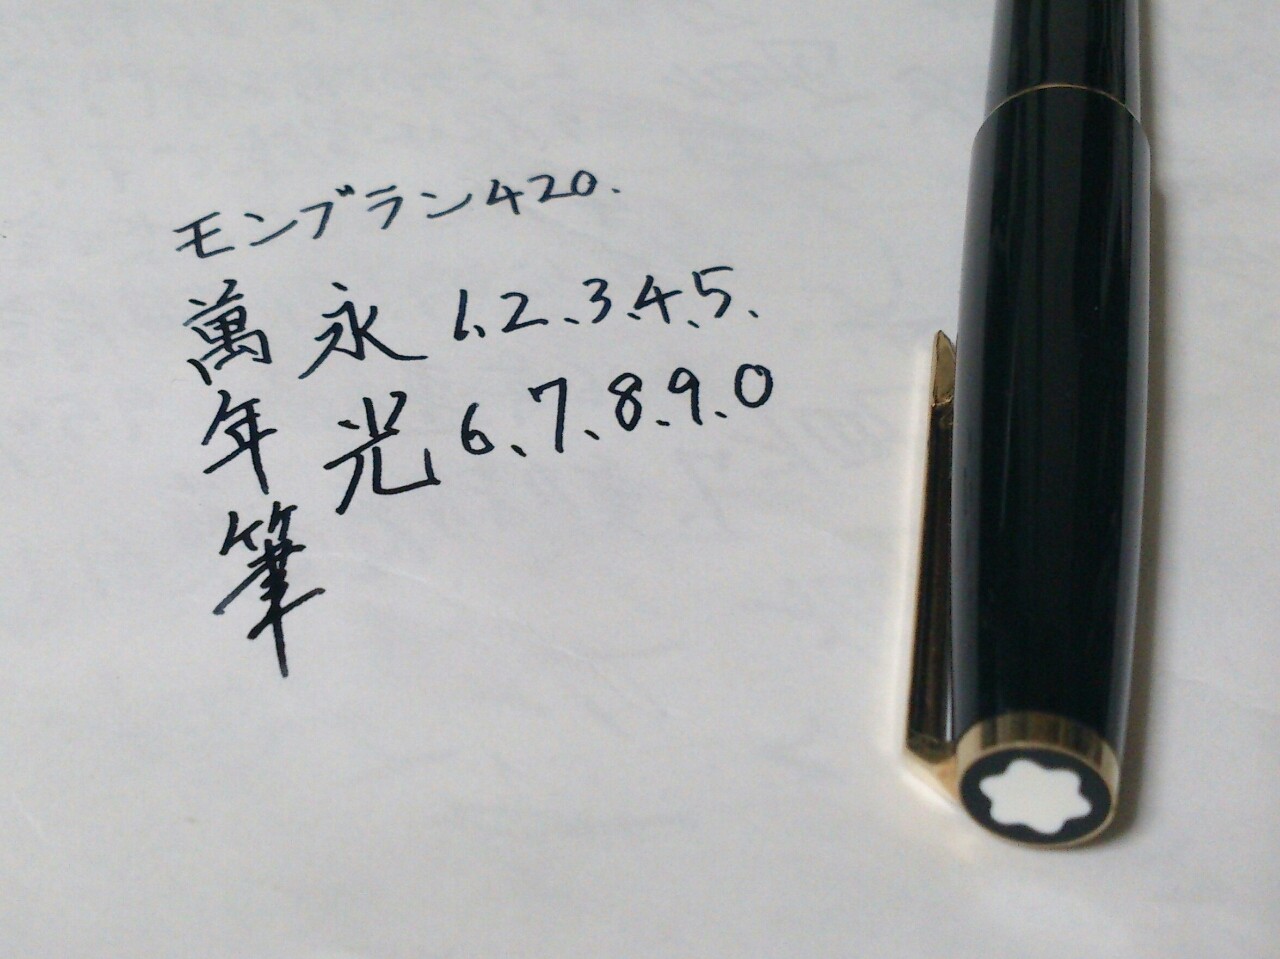 モンブラン420.
萬年筆
永光
1、2、3、4、5、
6、7、8、9、0